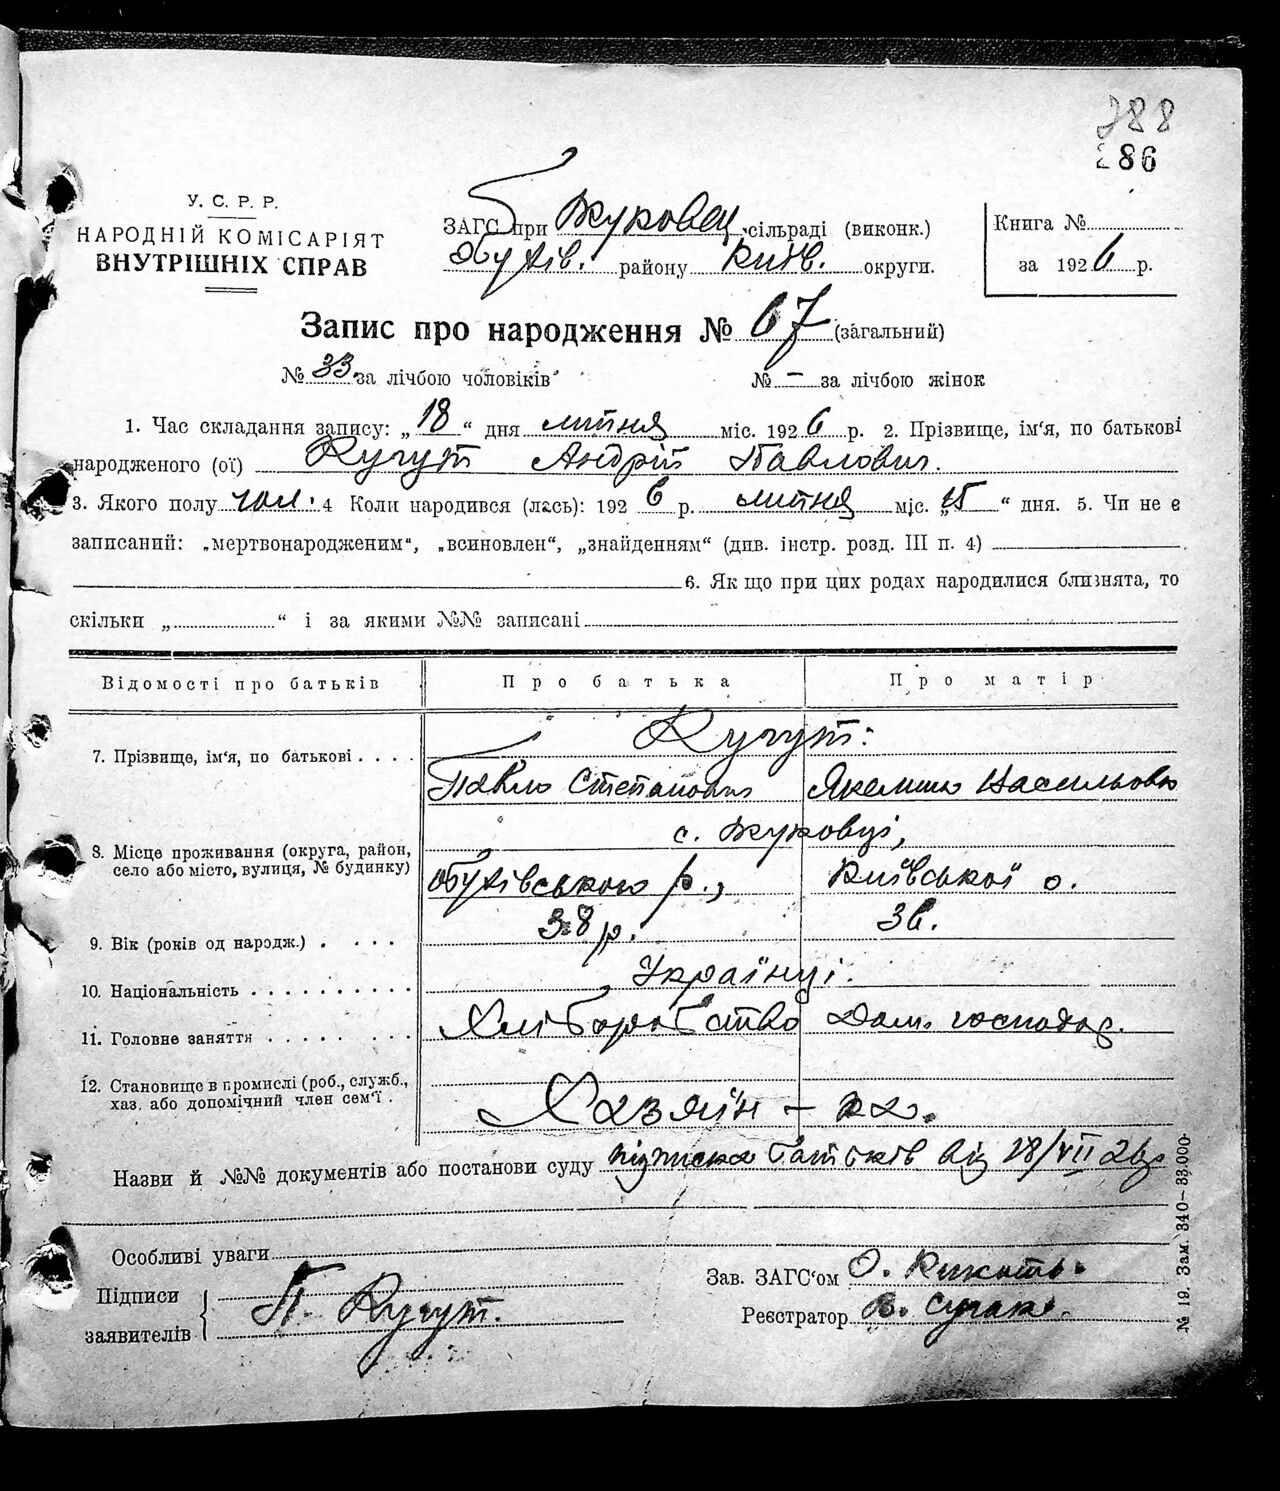 288
286
У. С. Р. Р.
НАРОДНІЙ КОМІСАРІЯТ
ВНУТРІШНІХ СПРАВ
ЗАГС при Жуковец. сільраді (виконк.)
Обухів. району Київ. округи.
Книга №
за 1926 р.
Запис про народження № 67 (загальний)
№ 33 за лічбою чоловіків № – за лічбою жінок
1. Час складання запису: „18“ дня липня міс. 1926 р. 2. Прізвище, ім'я, по батькові
народженого (ої) Кугут Андрій Павлович.
3. Якого полу чол. 4 Коли народився (лась): 1926 р. липня міс. „15“ дня. 5. Чи не є
записаний: „мертвонародженим“, „всиновлен“, „знайденням“ (див. інстр. розд. III п. 4)
6. Як що при цих родах народилися близнята, то
скільки „ “ і за якими №№ записані
Відомості про батьків Про батька Про матір
7. Прізвище, ім'я, по батькові Кугут:
Павло Степанович
8. Місце проживання (округа, район,
село або місто, вулиця, № будинку)
с. Жуковці,
Обухівського р., Київської о.
9. Вік (років од народж.) 38 р. 36.
10. Національність Українці.
11. Головне заняття Хліборобство Дом. господар.
12. Становище в промислі (роб., служб.,
хаз. або допомічний член сем'ї.
Хазяїн – ка.
Назви й №№ документів або постанови суду підписка батьків від 18/VII 26р.
Особливі уваги
Підписи
заявителів П. Кугут.
Зав. ЗАГС'ом О.
Реєстратор
№ 19. Зам. 340–33.000.